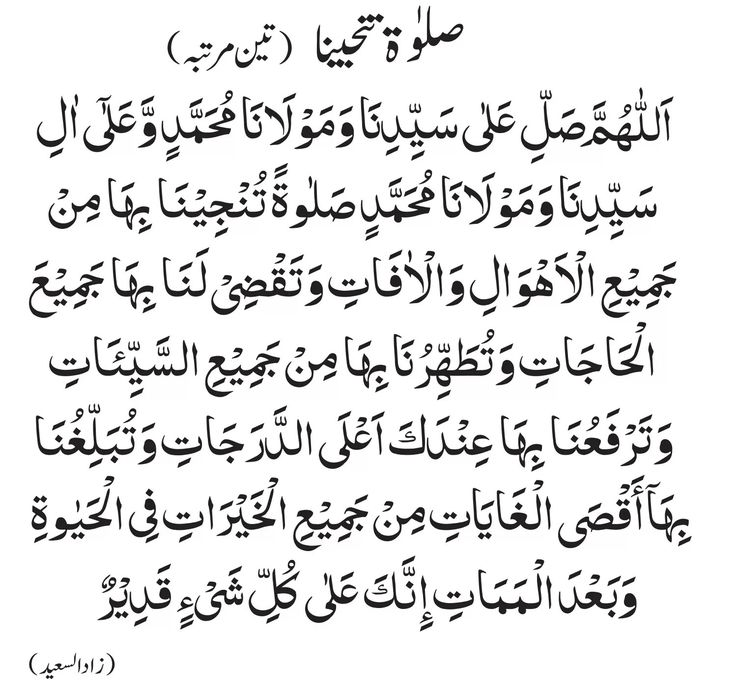 صلوٰۃ تنجینا (تین مرتبہ)
اَللّٰهُمَّ صَلِّ عَلٰى سَيِّدِنَا وَمَوْلَانَا مُحَمَّدٍ وَّعَلٰٓى اٰلِ
سَيِّدِنَا وَمَوْلَانَا مُحَمَّدٍ صَلٰوةً تُنْجِيْنَا بِهَا مِنْ
جَمِيْعِ الْاَهْوَالِ وَالْاٰفَاتِ وَتَقْضِىْ لَنَا بِهَا جَمِيْعَ
الْحَاجَاتِ وَتُطَهِّرُنَا بِهَا مِنْ جَمِيْعِ السَّيِّئَاتِ
وَتَرْفَعُنَا بِهَا عِنْدَكَ اَعْلَى الدَّرَجَاتِ وَتُبَلِّغُنَا
بِهَآ أَقْصَى الْغَايَاتِ مِنْ جَمِيْعِ الْخَيْرَاتِ فِى الْحَيٰوةِ
وَبَعْدَ الْمَمَاتِ إِنَّكَ عَلٰى كُلِّ شَىْءٍ قَدِيْرٌ
(زاد السعید)